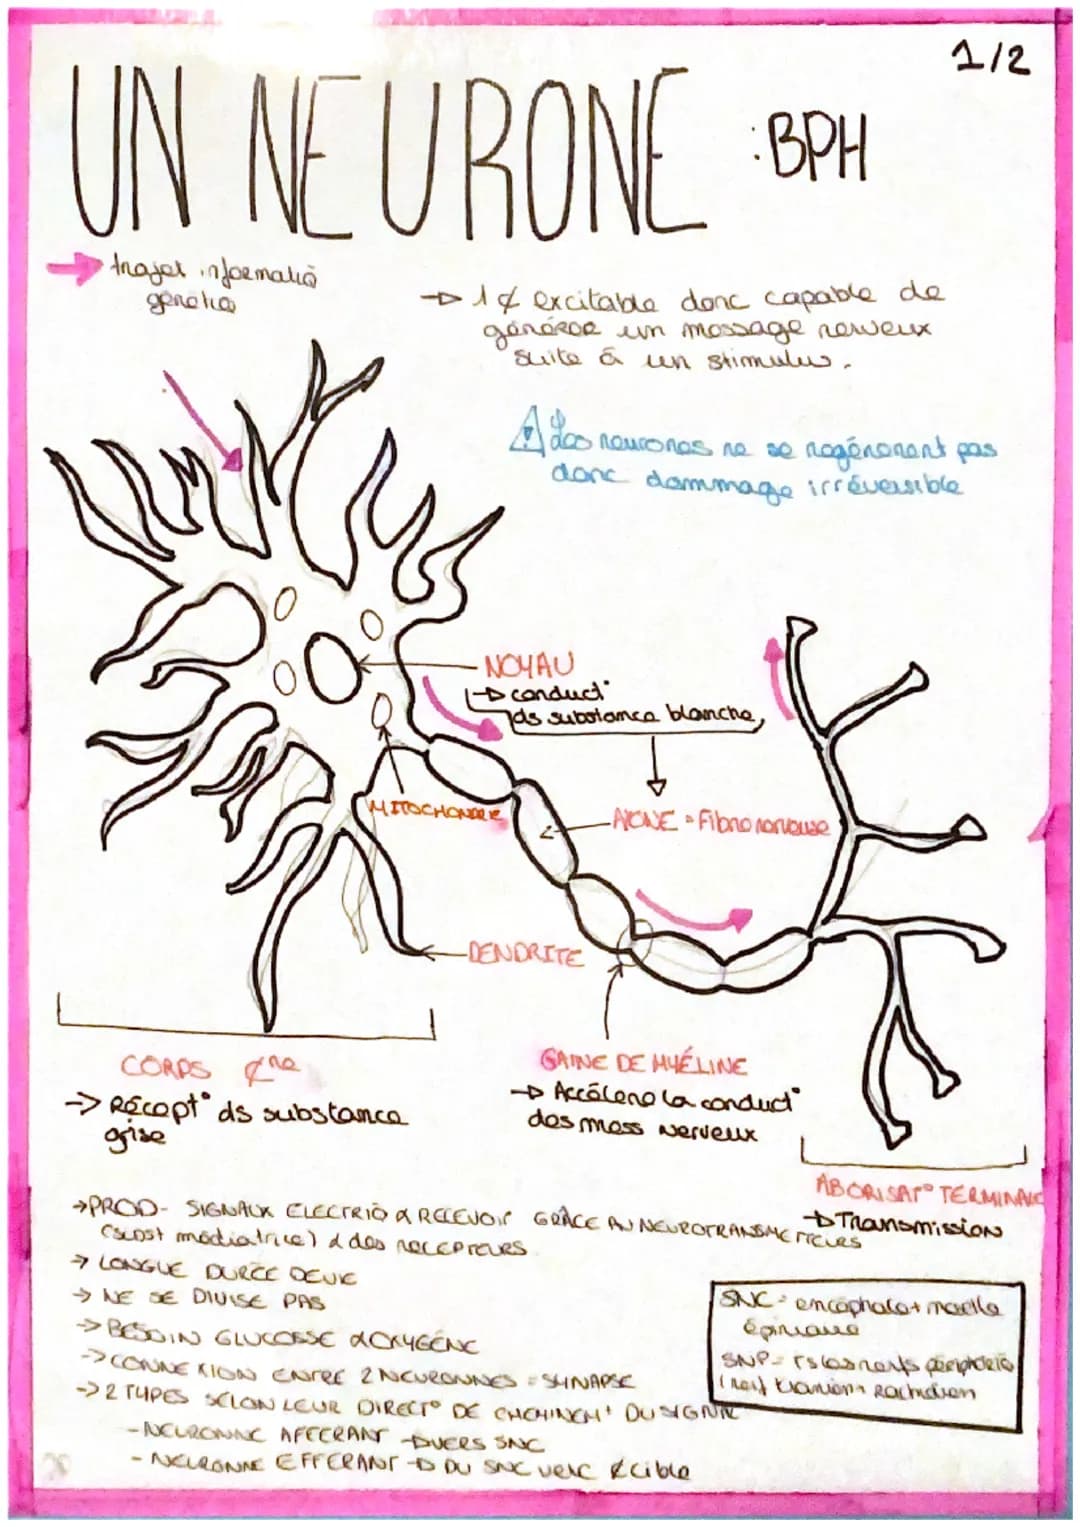 1/2
UN NEURONE : BPH
trajet informatiō
génétiq
→ 1 ¢ excitable donc capable de
générer un message nerveux
suite à un stimulus.
Les neurones ne se regénerent pas
donc dommage irréversible
NOYAU
→ conduct°
ds substance blanche,
MITOCHONDRIE
AXONE = Fibre nerveuse
DENDRITE
CORPS ¢re
→ Récept° ds substance
grise
GAINE DE MYÉLINE
→ Accélere la conduct°
des mess nerveux
ABORISAT° TERMINALE
→ Transmission
→ PROD- SIGNAUX ELECTRIQ & RECEVOIR GRÂCE AU NEUROTRANSMETTEURS
(subst médiatrice) & des RECEPTEURS
→ LONGUE DURÉE DE VIE
→ NE SE DIVISE PAS
→ BESOIN GLUCOSSE & OXYGÉNE
→ CONNEXION ENTRE 2 NEURONNES = SYNAPSE
→ 2 TYPES SELON LEUR DIRECT° DE CHEMINEMt DU SIGNAL
- NEURONNE AFFERANT → VERS SNC
- NEURONNE EFFERANT → DU SNC VERS ¢ cible
SNC = encéphale + moelle
épiniere
SNP = ts les nerfs périphériq
(nerf cranien + Rachidien